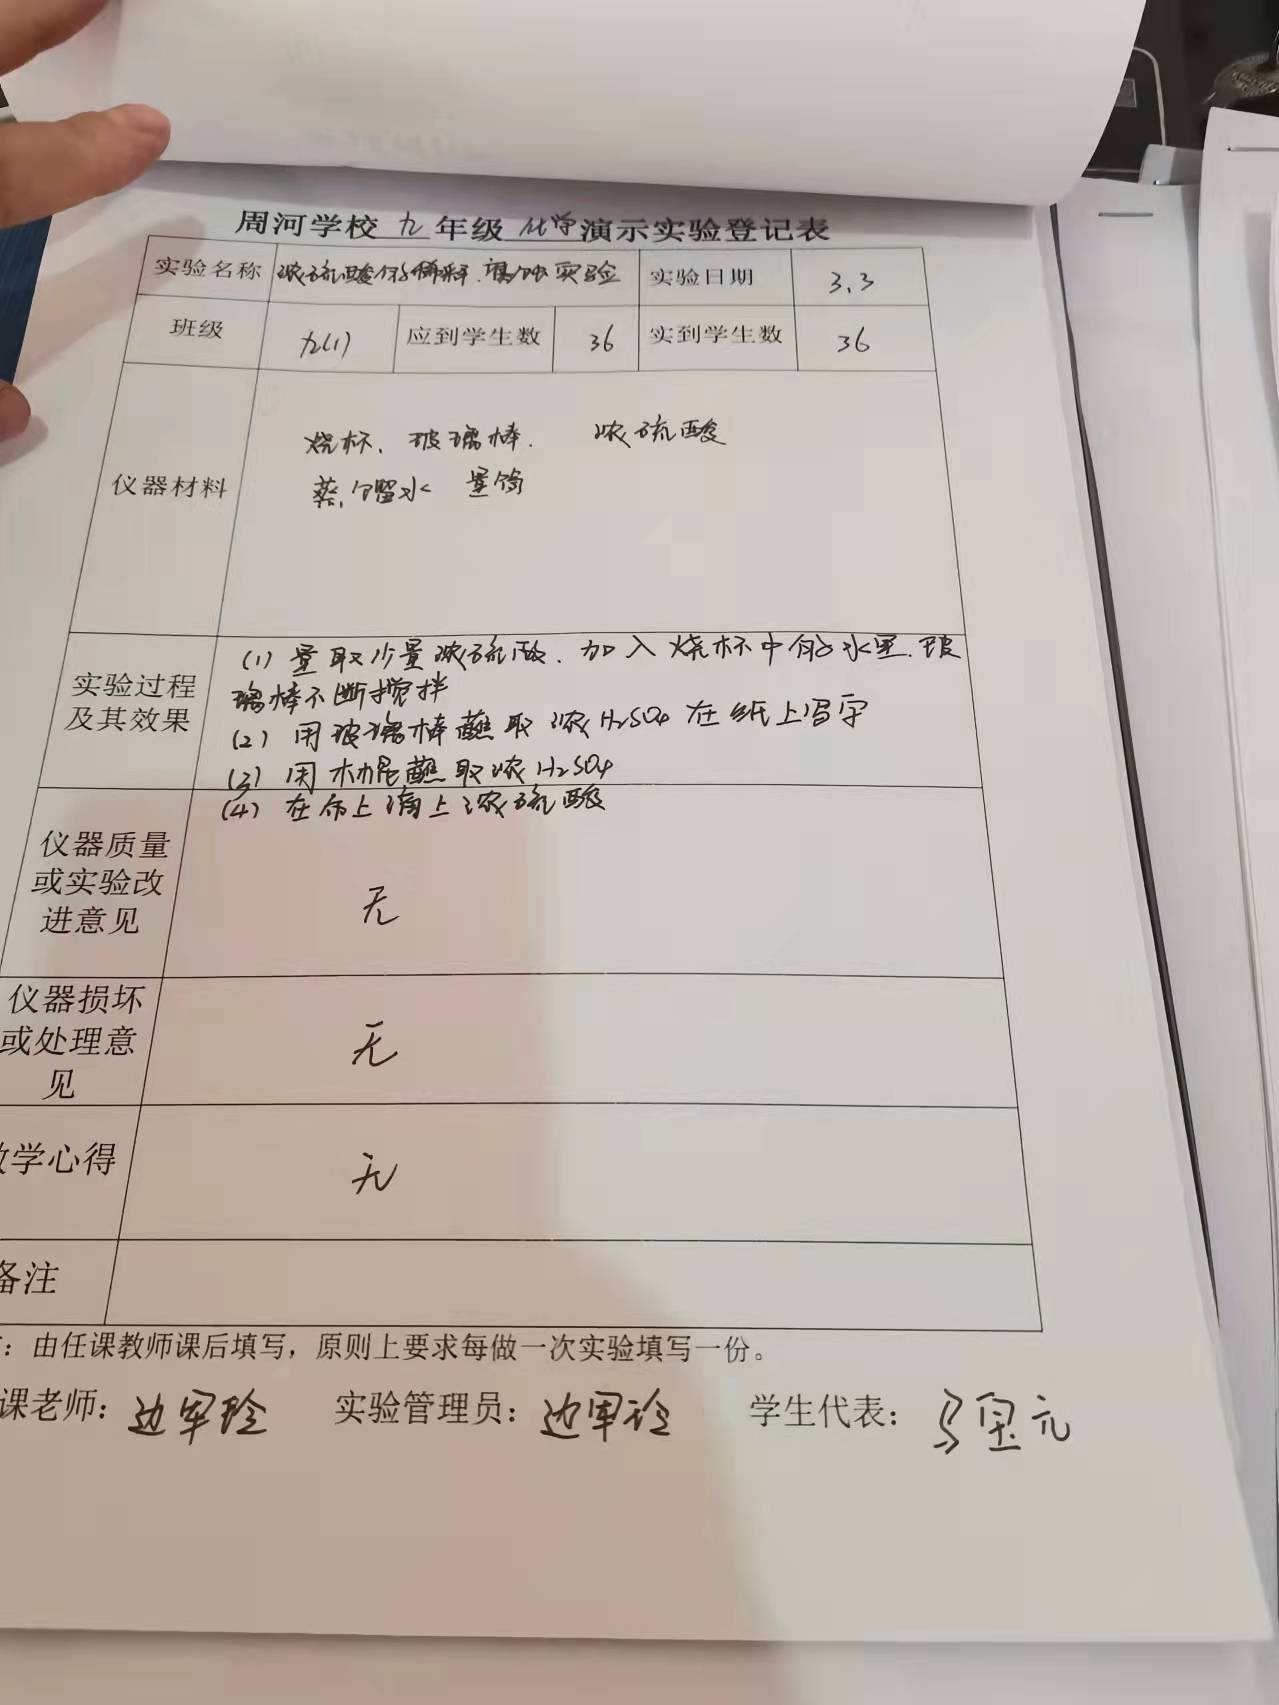 周河学校 九 年级 化学 演示实验登记表
实验名称 浓硫酸的稀释.腐蚀实验 实验日期 3.3
班级 九(1) 应到学生数 36 实到学生数 36
烧杯、玻璃棒. 浓硫酸
仪器材料 蒸馏水 量筒
(1) 量取少量浓硫酸.加入烧杯中的水里.玻
实验过程 璃棒不断搅拌
及其效果 (2) 用玻璃棒蘸取浓H₂SO₄在纸上写字
(3) 用木棍蘸取浓H₂SO₄
(4) 在布上滴上浓硫酸
仪器质量
或实验改 无
进意见
仪器损坏
或处理意 无
见
学心得 无
备注
：由任课教师课后填写，原则上要求每做一次实验填写一份。
课老师：边军玲 实验管理员：边军玲 学生代表：